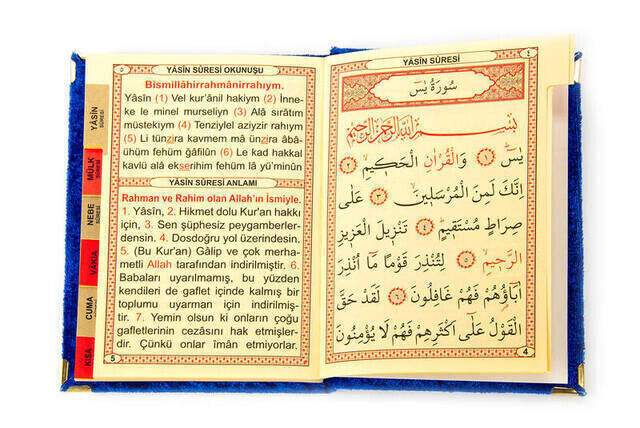 YASİN
SÛRESİ
MÜLK
SÛRESİ
NEBE
SÛRESİ
VÂKIA
CUMA
KISA
٥
YÂSÎN SÛRESİ OKUNUŞU
Bismillâhirrahmânirrahıym.
Yâsîn (1) Vel kur'ânil hakiym (2) İnne-
ke le minel murseliyn (3) Alâ sırâtım
müstekıym (4) Tenziylel aziyzir rahıym
(5) Li tünzira kavmem mâ ünzira âbâ-
ühüm fehüm ğâfilûn (6) Le kad hakkal
kavlü alâ ekserihim fehüm lâ yü'minûn
YÂSÎN SÛRESİ ANLAMI
Rahman ve Rahim olan Allah'ın İsmiyle.
1. Yâsîn, 2. Hikmet dolu Kur'an hakkı
için, 3. Sen şüphesiz peygamberler-
densin. 4. Dosdoğru yol üzerindesin.
5. (Bu Kur'an) Gâlip ve çok merha-
metli Allah tarafından indirilmiştir. 6.
Babaları uyarılmamış, bu yüzden
kendileri de gaflet içinde kalmış bir
toplumu uyarman için indirilmiş-
tir. 7. Yemin olsun ki onların çoğu
gafletlerinin cezasını hak etmişler-
dir. Çünkü onlar îmân etmiyorlar.
5
٤
YÂSÎN SÛRESİ
سُورَةُ يٰسٓ
بِسْمِ اللّٰهِ الرَّحْمٰنِ الرَّحِيمِ
يٰسٓ ﴿١﴾ وَالْقُرْاٰنِ الْحَكِيمِ ﴿٢﴾
اِنَّكَ لَمِنَ الْمُرْسَلِينَ ﴿٣﴾ عَلٰى
صِرَاطٍ مُسْتَقِيمٍ ﴿٤﴾ تَنْزِيلَ الْعَزِيزِ
الرَّحِيمِ ﴿٥﴾ لِتُنْذِرَ قَوْمًا مَٓا اُنْذِرَ
اٰبَٓاؤُهُمْ فَهُمْ غَافِلُونَ ﴿٦﴾ لَقَدْ حَقَّ
الْقَوْلُ عَلٰٓى اَكْثَرِهِمْ فَهُمْ لَا يُؤْمِنُونَ
4